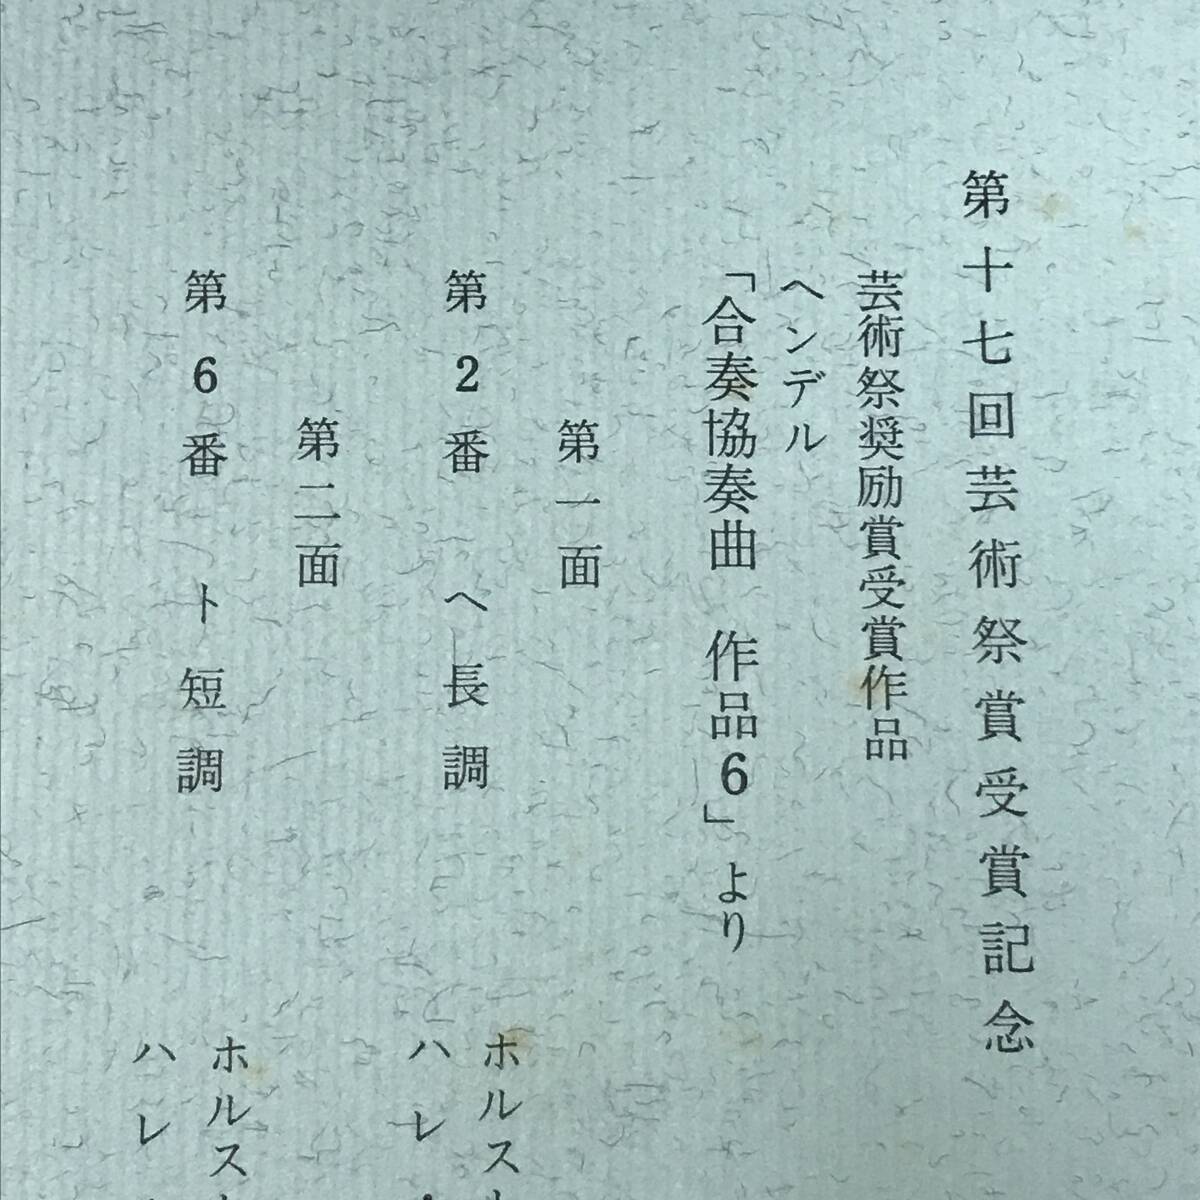 第十七回芸術祭賞受賞記念
芸術祭奨励賞受賞作品
ヘンデル
「合奏協奏曲　作品6」より
第一面
第2番　ヘ長調
ホルス
ハレ
第二面
第6番　ト短調
ホルス
ハレ